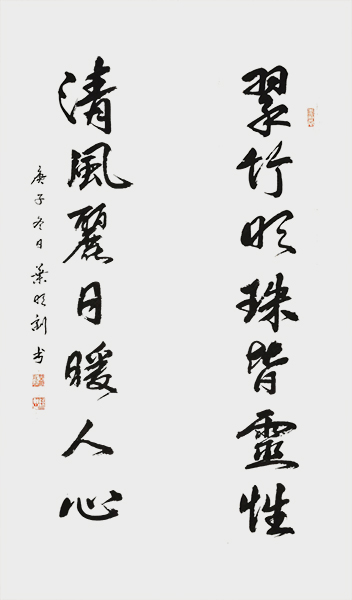 翠竹明珠皆靈性
清風麗日暖人心
庚子冬日葉明书